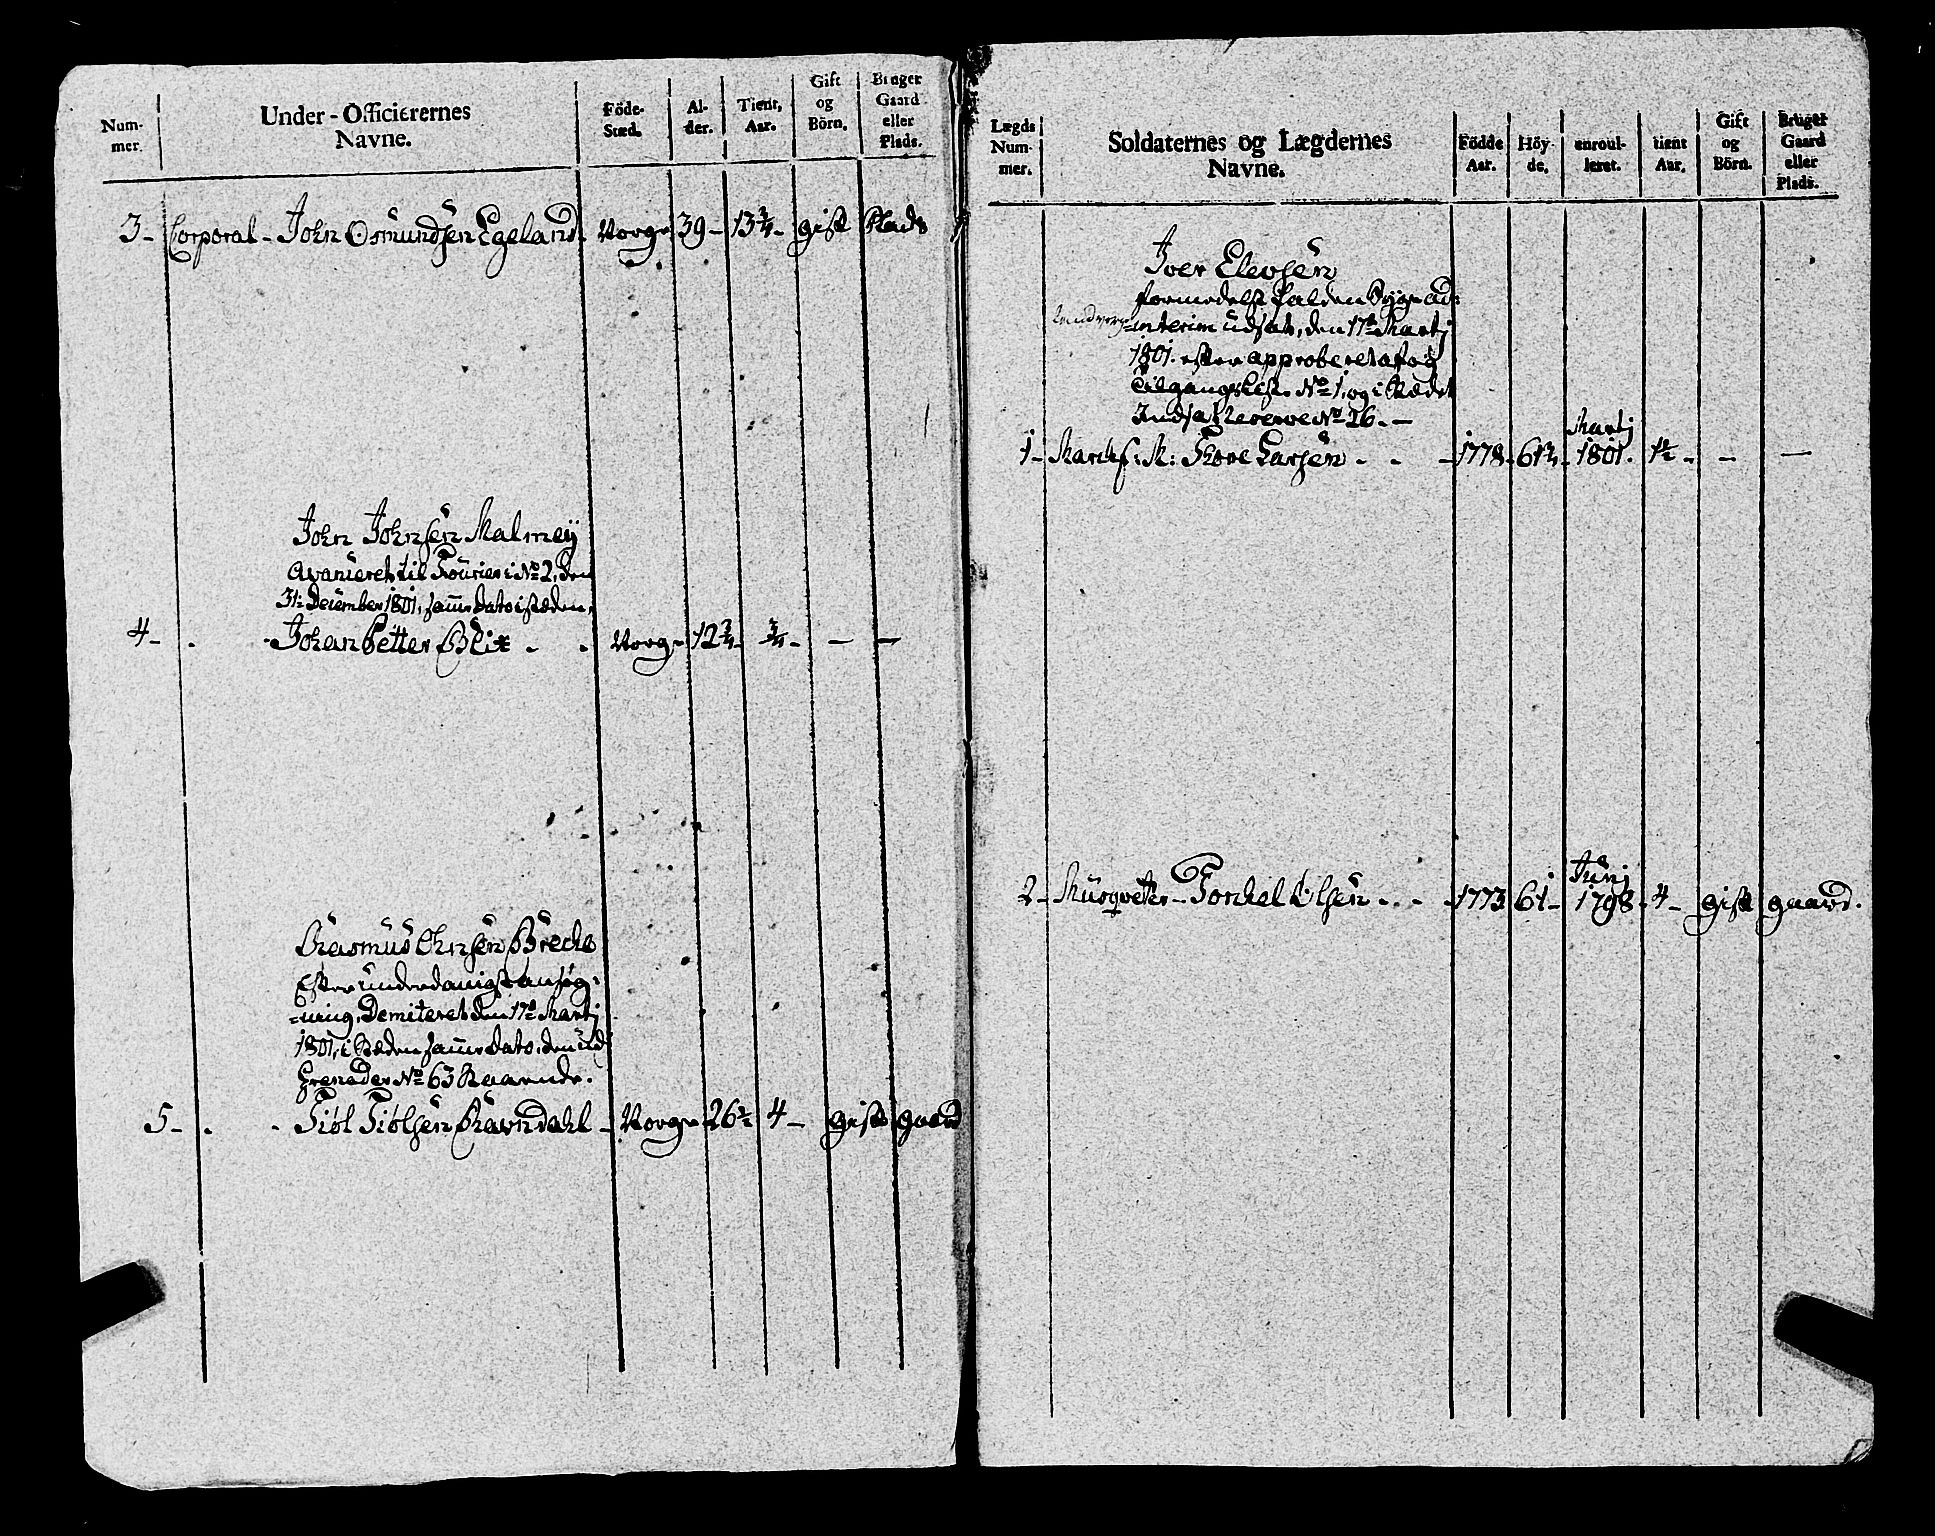 Num-
mer.
Under-Officierernes
Navne.
Föde-
Stæd.
Al-
der.
Tient,
Aar.
Gift
og
Börn.
Bruger
Gaard
eller
Plads.
3- Corporal- John Osmundsen Egeland- Norge 39- 13¾- gift Plads
John Johnsen Malmey
avanseret til Fourier i No 2, den
31te December 1801, samme dato i stæden,
4- . - Johan Petter Blix . . Norge 12¾- ¾- — —
Rasmus Ohnsen Brecke
Efter underdanigst ansøg-
=ning, Demiteret den 17de Martj
1801, i Stæden samme dato, den ud
Grenader No 63 Staaende.
5- . . Tiøl Tiølsen Ravndahl- Norge 26½ 4- gift gaard
Lægds
Num-
mer.
Soldaternes og Lægdernes
Navne.
Födde
Aar.
Höy-
de,
enroul-
leret.
tient
Aar,
Gift
og
Börn.
Bruger
Gaard
eller
Plads.
Iver Elevsen
formedelst falden Syge ad-
=interim udsat, den 17de Martj
1801. efter approberet af og
Tilgangs List. No 1, og i Stædet
Indsat Reserve No 26. —
Martj
1- M: Tore Larsen . . - 1778- 61¾- 1801. 1½- — —
Junj
2- Musqveter- Torkel Olsen . . . - 1773 61- 1798- 4- gift gaard.